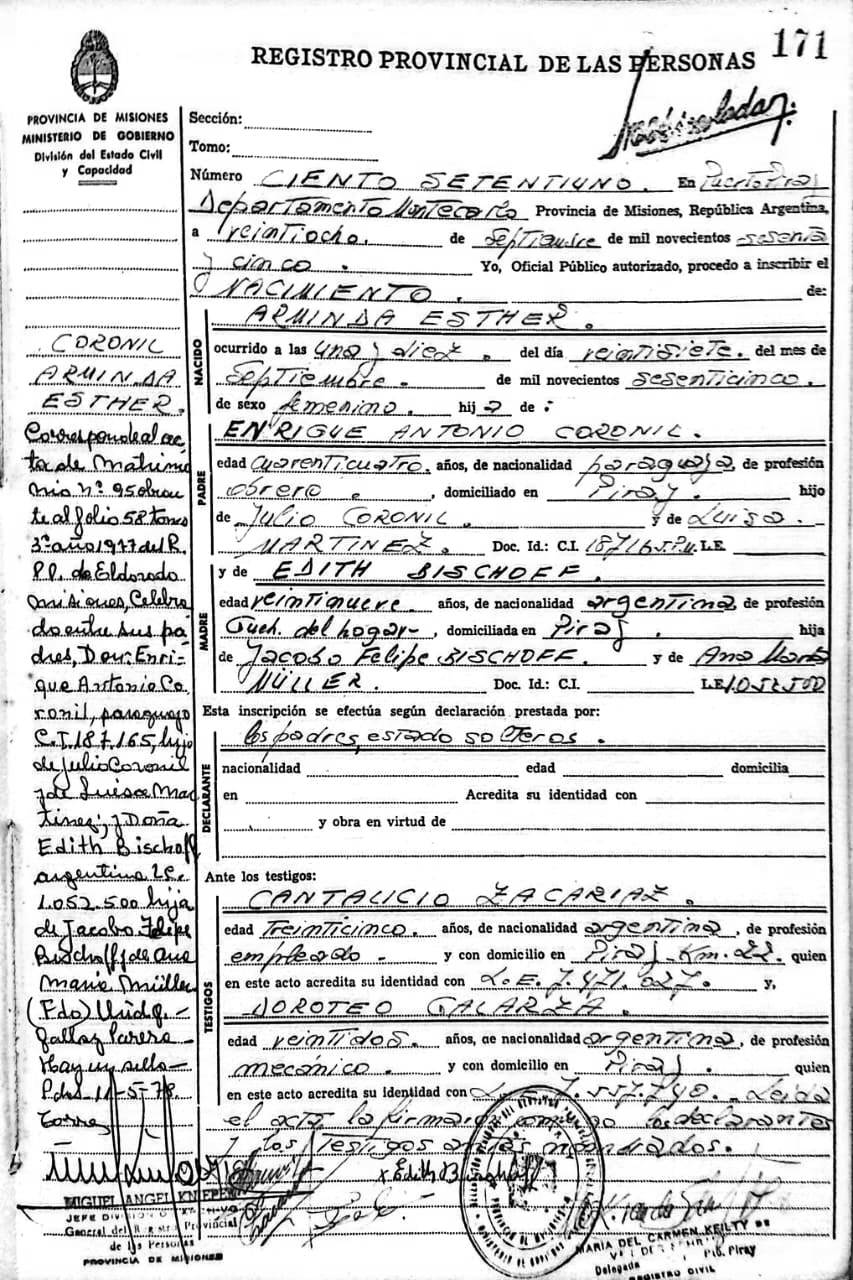 171
REGISTRO PROVINCIAL DE LAS PERSONAS
PROVINCIA DE MISIONES
MINISTERIO DE GOBIERNO
División del Estado Civil
y Capacidad
CORONIL
ARMINDA
ESTHER.
Corresponde al ac
ta de Matrimo
nio nº 95 obran
te al folio 58 tomo
3º año 1977 del R.
P.P. de Eldorado
Misiones, Celebra
do entre sus pa
dres, Don: Enri-
que Antonio Co
ronil, paraguayo
C.I. 187.165, hijo
de Julio Coronil
y de Luisa Mar
tinez; y Doña
Edith Bischoff
argentina LC.
1.052.500 hija
de Jacobo Felipe
Bischoff y de Ana
María Müller
(Fdo)
Hay un sello-
Pdas 11-5-78.
Torres
MIGUEL ANGEL
JEFE DIVISION
General del Registro Provincial
de las Personas
PROVINCIA DE MISIONES
Sección:
Tomo:
Número CIENTO SETENTIUNO. En Puerto Piray
Departamento Montecarlo Provincia de Misiones, República Argentina,
a veintiocho. de Septiembre de mil novecientos sesenta
y cinco. Yo, Oficial Público autorizado, procedo a inscribir el
NACIMIENTO. de:
NACIDO
ARMINDA ESTHER.
ocurrido a las una y diez. del día veintisiete. del mes de
Septiembre. de mil novecientos sesenticinco.
de sexo femenino. hij a de:
PADRE
ENRIQUE ANTONIO CORONIL.
edad cuarenticuatro. años, de nacionalidad paraguaya, de profesión
obrero. , domiciliado en Piray. hijo
de Julio CORONIL. y de Luisa.
MARTINEZ. Doc. Id.: C.I. L.E.
MADRE
y de EDITH BISCHOFF.
edad veintinueve. años, de nacionalidad argentina, de profesión
Queh. del hogar- , domiciliada en Piray. hija
de Jacobo Felipe BISCHOFF. y de Ana María
MÜLLER. Doc. Id.: C.I. L.E. 1.052.500
Esta inscripción se efectúa según declaración prestada por:
DECLARANTE
los padres, estado solteros.
nacionalidad edad domicilia
en Acredita su identidad con
y obra en virtud de
Ante los testigos:
TESTIGOS
CANTALICIO ZACARIAZ.
edad Treinticinco. años, de nacionalidad argentina, de profesión
empleado- y con domicilio en Piray Km. 22. quien
en este acto acredita su identidad con L.E. 7.471.027. y,
DOROTEO GALARZA.
edad veintidos. años, de nacionalidad argentina, de profesión
mecánico. y con domicilio en Piray. quien
en este acto acredita su identidad con L. 7.557.740. Leida
el acta la firman conmigo los declarantes
y los Testigos mencionados.
x Edith Bischoff
MARIA DEL CARMEN KEILTY DE
Pto. Piray
Delegada
REGISTRO CIVIL